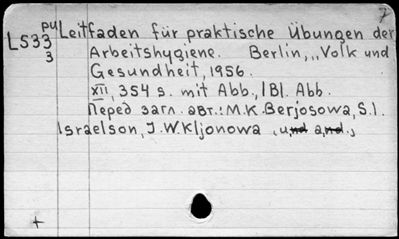 7
L533 руLeitfaden für praktische Übungen der
3 Arbeitshygiene. Berlin, „Volk und
Gesundheit, 1956.
XII, 354 s. mit Abb., 1 Bl. Abb.
Перед загл. авт.: M.K. Berjosowa, S.I.
Israelson, J.W. Kljonowa u. a.